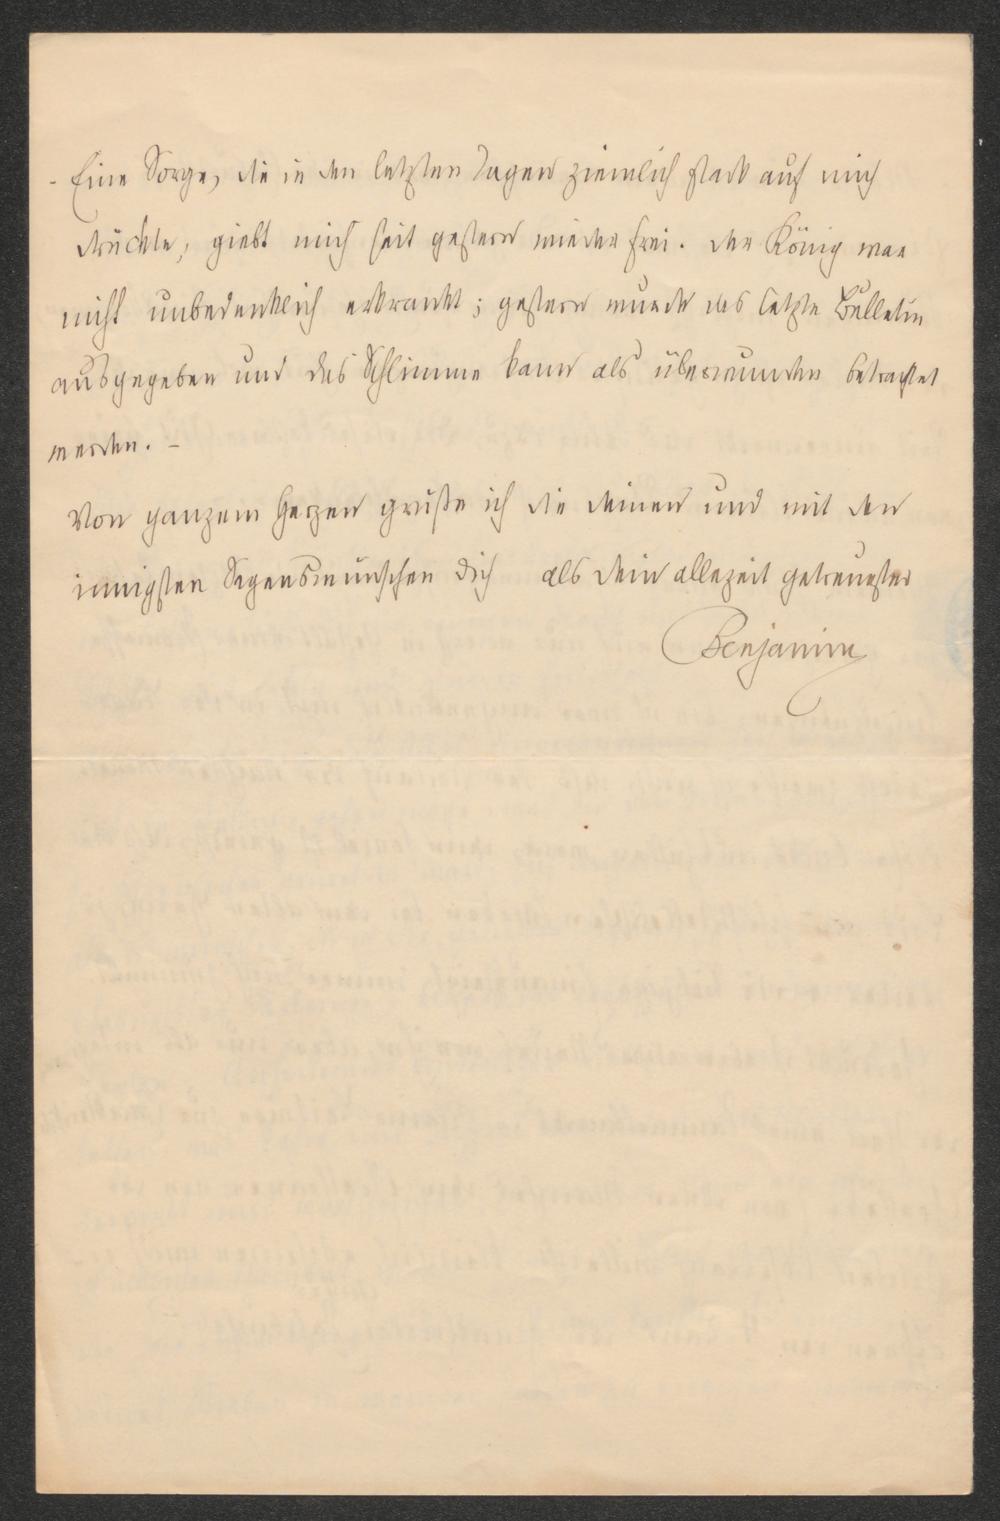 - Eine Sorge, die in den letzten Tagen ziemlich stark auf mich
drückte, giebt mich seit gestern wieder frei. Der König war
nicht unbedenklich erkrankt; gestern wurde das letzte Bulletin
ausgegeben und das Schlimme kann als überwunden betrachtet
werden. -
Von ganzem Herzen grüße ich die Deinen und mit den
innigsten Segenswünschen Dich als Dein allezeit getreuester
Benjamin